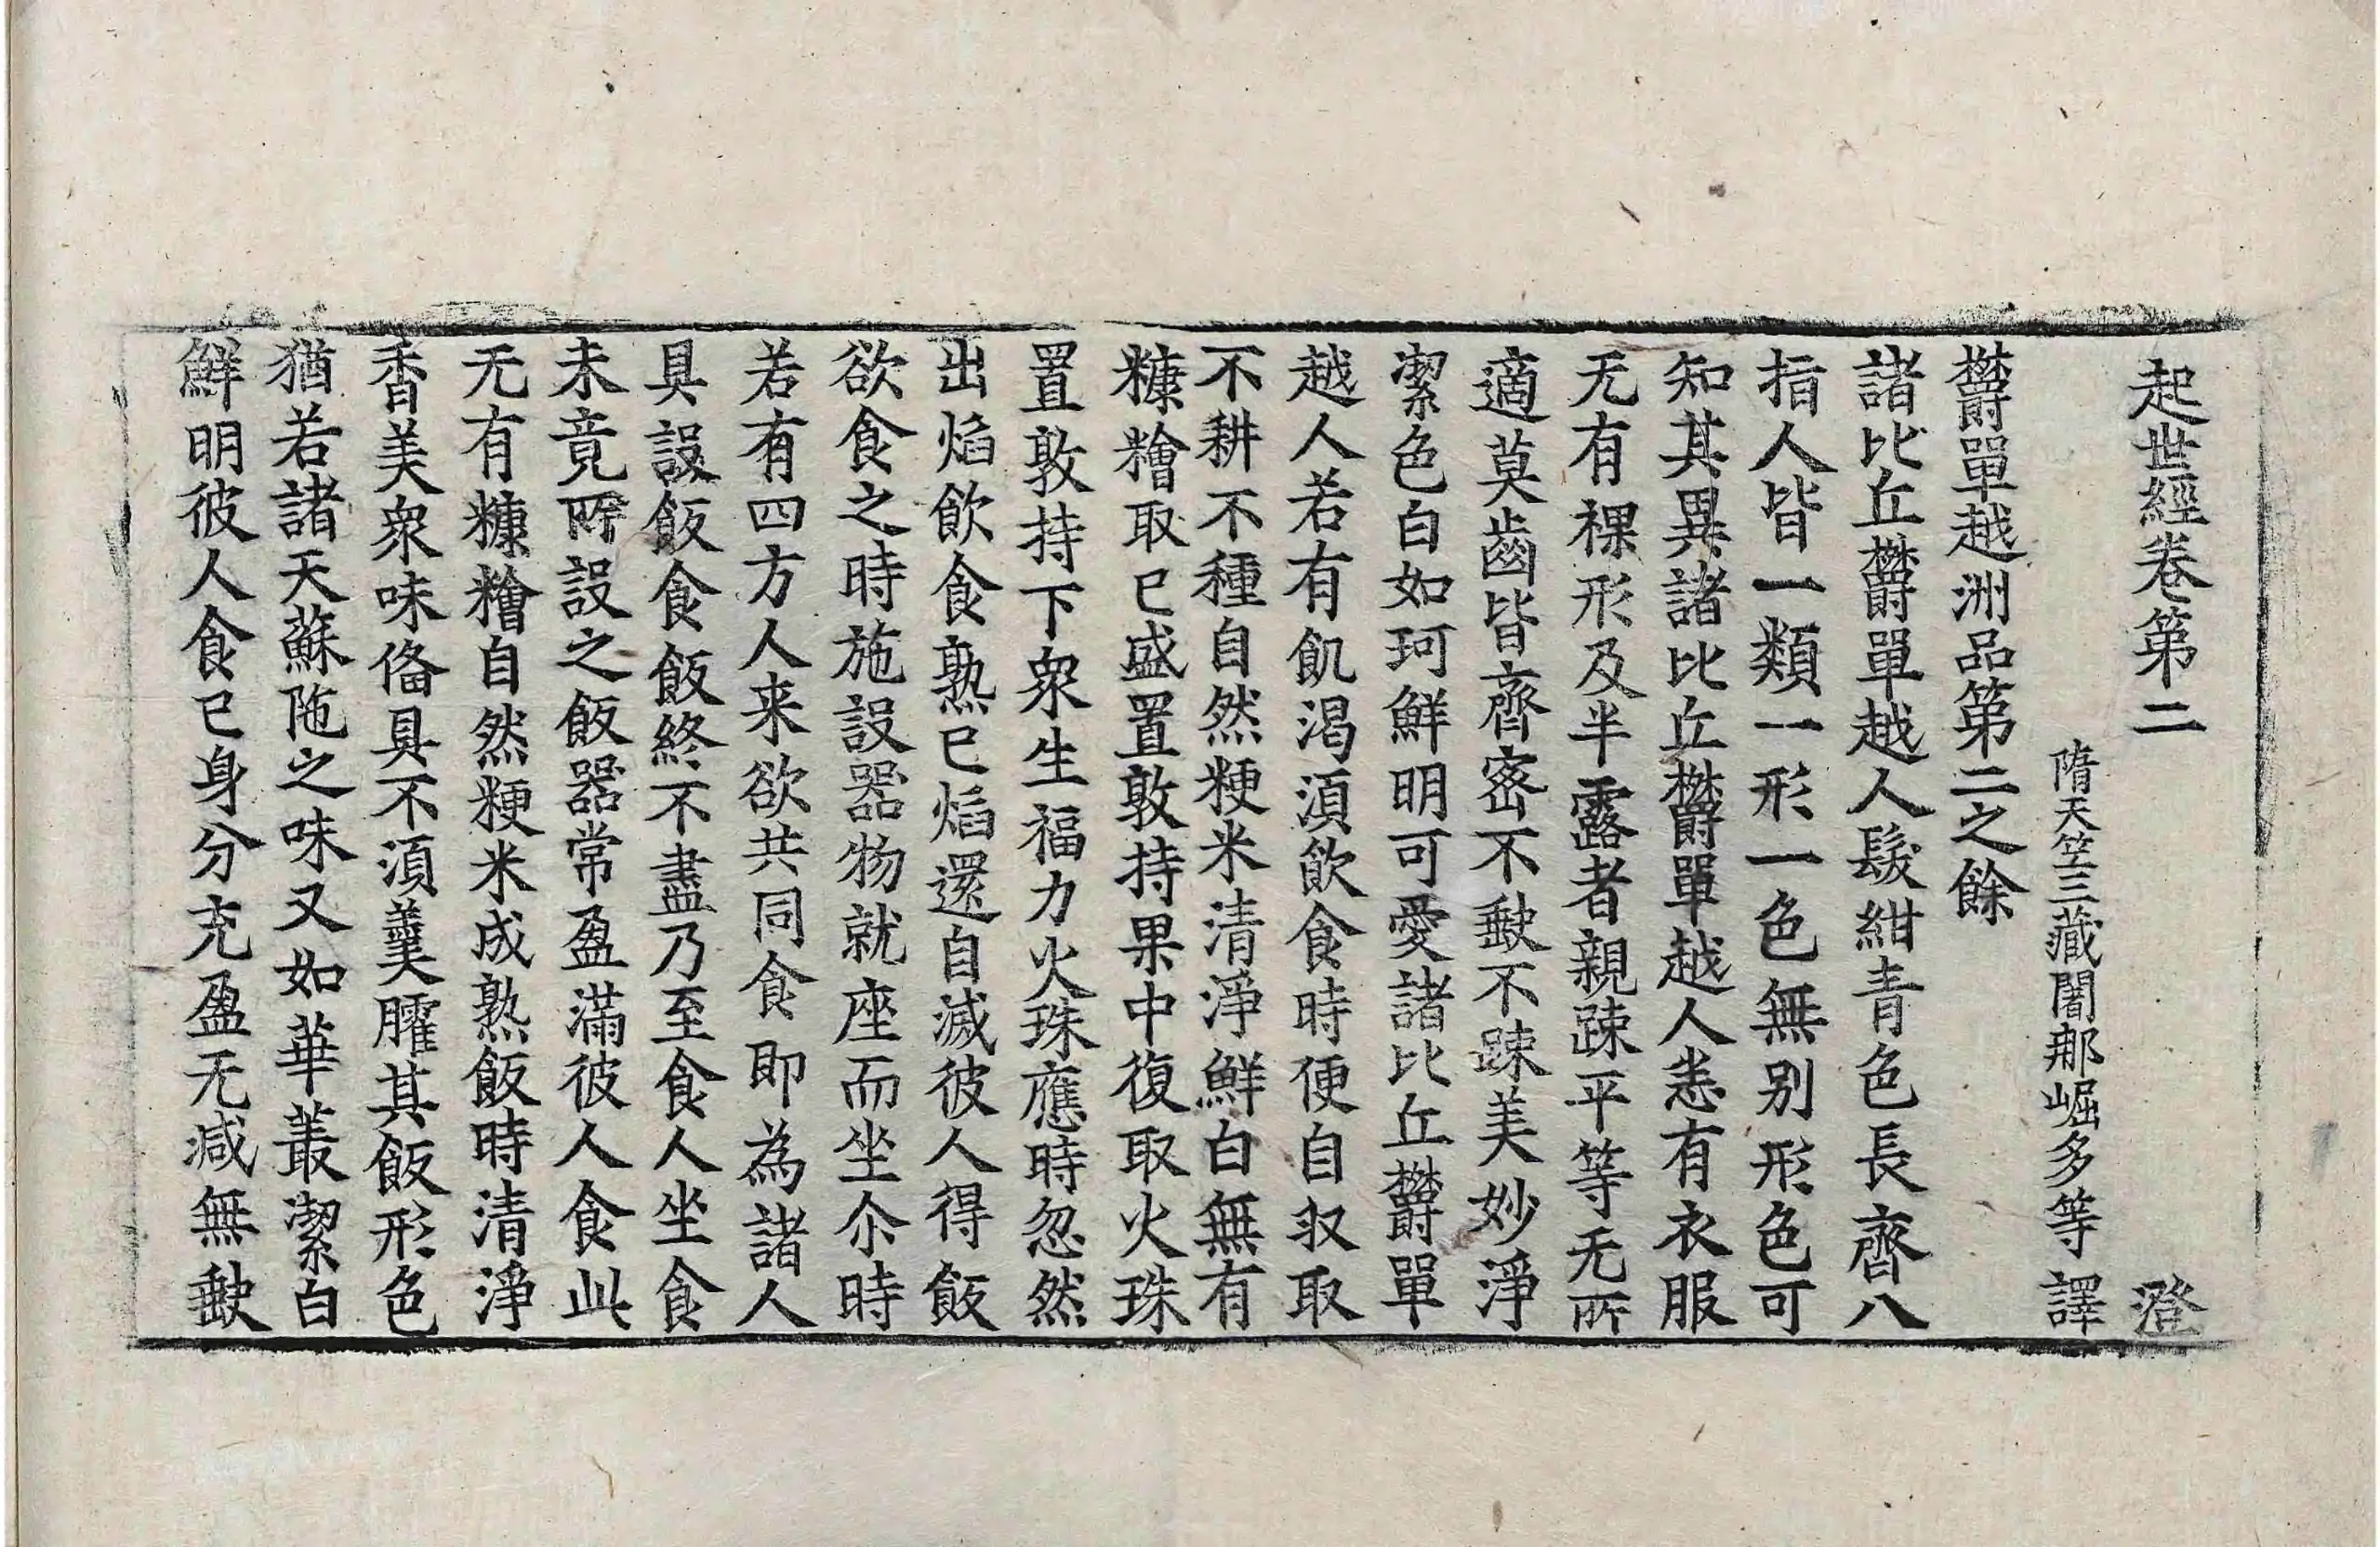 起世經卷第二　澄
隋天竺三藏闍那崛多等譯
欝單越洲品第二之餘
諸比丘欝單越人髮紺青色長齊八
指人皆一類一形一色無别形色可
知其異諸比丘欝單越人悉有衣服
无有裸形及半露者親踈平等无所
適莫齒皆齊密不𡙇不踈美妙淨
潔色白如珂鮮明可愛諸比丘欝單
越人若有飢渴湏飲食時便自収取
不耕不種自然粳米清淨鮮白無有
糠糩取已盛置敦持果中復取火珠
置敦持下衆生福力火珠應時忽然
出焰飲食熟已焰還自滅彼人得飯
欲食之時施設器物就座而坐尒時
若有四方人来欲共同食即為諸人
具設飯食飯終不盡乃至食人坐食
未竟所設之飯器常盈滿彼人食此
无有糠糩自然粳米成熟飯時清淨
香美衆味俻具不湏羹臛其飯形色
猶若諸天蘇陁之味又如華叢潔白
鮮明彼人食已身分充盈无减無𡙇